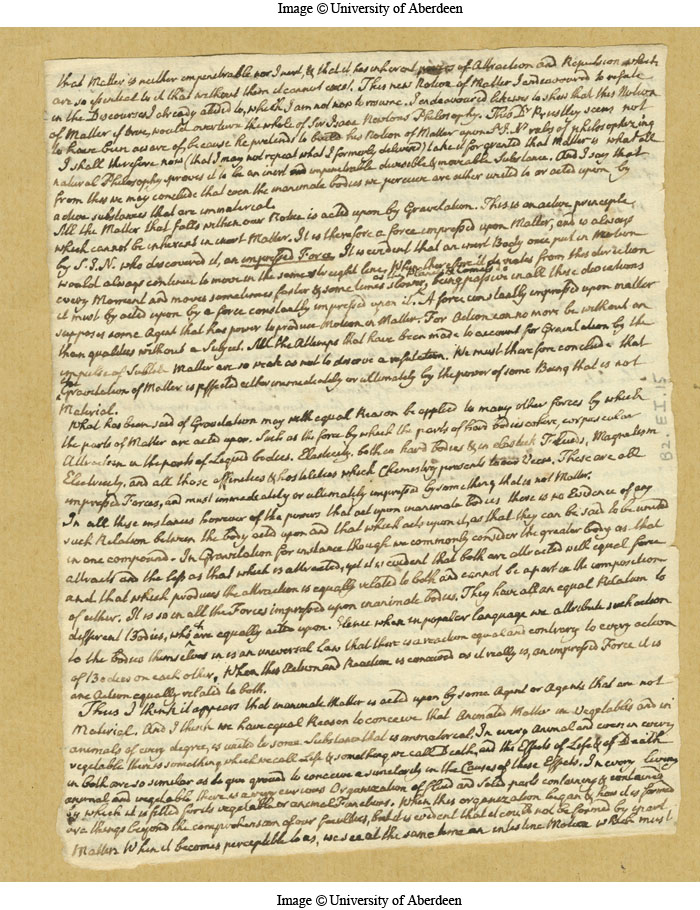 Image © University of Aberdeen
that Matter is neither impenetrable nor Inert, & that it has inherent powers of Attraction and Repulsion which
are so essential to it that without them it cannot exist. This new Notion of Matter I endeavoured to refute
in the Discourses I already alluded to, which I am not now to resume. I endeavoured likewise to shew that this Notion
of Matter if true, would overturn the whole of Sir Isaac Newtons Philosophy. This Dr Priestley seems not
to have been aware of, because he pretends to build his Notion of Matter upon Sr I. N rules of philosophizing
I shall therefore now (that I may not repeat what I formerly delivered) take it for granted that Matter is what all
natural Philosophy proves it to be an inert and impenetrable divisible & moveable Substance. And I say that
from this we may conclude that even the inanimate bodies we perceive are either united to or acted upon by
active substances that are immaterial.
All the Matter that falls within our Notice is acted upon by Gravitation. This is an active principle,
which cannot be inherent in inert Matter. It is therefore a force impressed upon Matter, and is always
by S. I. N. who discovered it, an impressed Force. It is evident that an inert Body once put in Motion
would always continue to move in the same streight line. When therefore it deviates from this direction
every Moment and moves sometimes faster & sometimes slower, as the Planets & Comets do being passive in all these deviations
it must be acted upon by a force constantly impressed upon it. A force constantly impressed upon matter
supposes some Agent that has power to produce Motion in Matter. For Action can no more be without an
than qualities without a Subject. All the Attempts that have been made to account for Gravitation by the
impulse of Subtile Matter are so weak as not to deserve a refutation. We must therefore conclude that
the Gravitation of Matter is effected either immediately or ultimately by the power of some Being that is not
Material.
What has been said of Gravitation may with equal Reason be applied to many other forces by which
the parts of Matter are acted upon. Such as the force by which the parts of hard bodies cohere, corpuscular
Attraction in the parts of Liquid bodies. Elasticity, both in hard bodies & in elastick Fluids, Magnetism
Electricity, and all those affinities & hostilities which Chemistry presents to our View. These are all
impressed Forces, and must immediately or ultimately impressed by something that is not Matter.
In all these instances however of the powers that act upon inanimate bodies there is no Evidence of any
such Relation between the body acted upon and that which acts upon it, as that they can be said to be united
in one compound. In Gravitation for instance though we commonly consider the greater body as that
attracts and the less as that which is attracted, yet it is evident that both are attracted with equal force
and that which produces the attraction is equally related to both and cannot be a part in the composition
of either. It is so in all the Forces impressed upon inanimate bodies. They have all an equal Relation to
different Bodies, who are equally acted upon. Hence when in popular language we attribute such action
to the bodies themselves it is an universal Law that there is a reaction equal and contrary to every action
of Bodies on each other. When this Action and Reaction is conceived as it really is, an impressed Force it is
one Action equally related to both.
Thus I think it appears that inanimate Matter is acted upon by some Agent or Agents that are not
Material. And I think we have equal Reason to conceive that Animated Matter in Vegetables and in
animals of every degree, is united to some Substance that is immaterial. In every Animal and even in every
vegetable there is something which we call Life & something we call Death, and the Effects of Life & of Death
in both are so similar as to give ground to conceive a similarity in the Causes of these Effects. In every living
animal and vegetable there is a very curious Organization of fluid and solid parts containing & contained
by which it is fitted for its vegetable or animal Functions. When this organization began & how it is formed
are things beyond the comprehension of our faculties, but it is evident that it could not be formed by inert
Matter. When it becomes perceptible to us, we see at the same time an intestine Motion which must
Image © University of Aberdeen